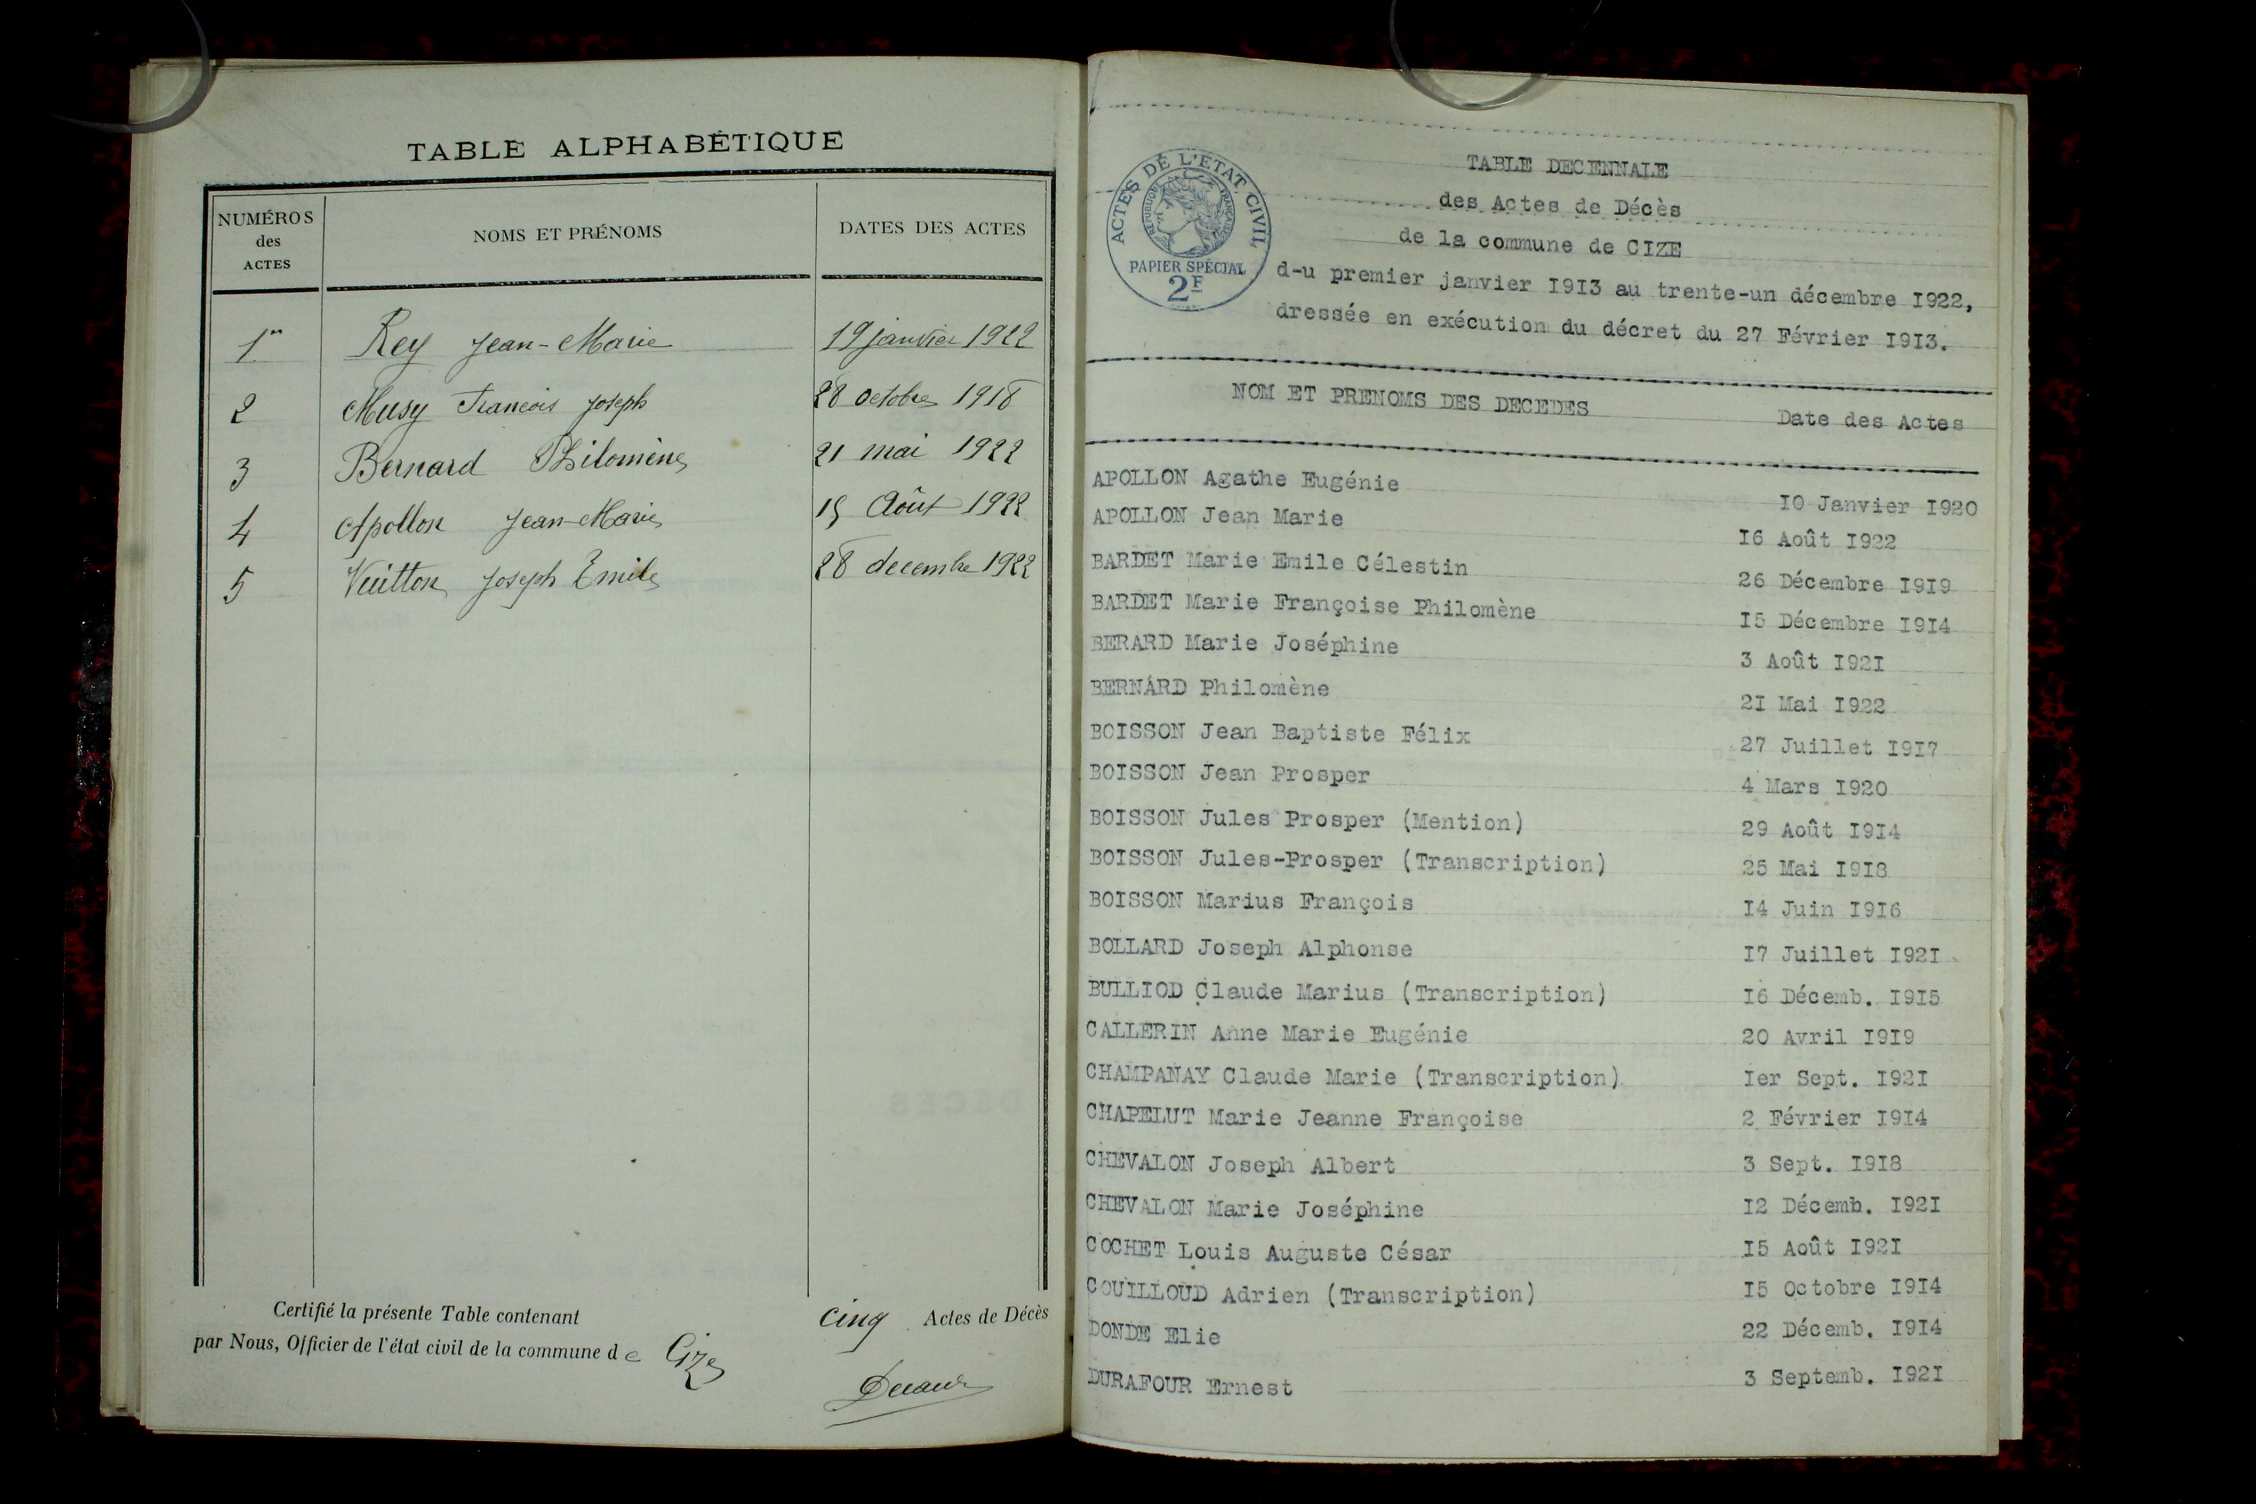 TABLE ALPHABÉTIQUE
NUMÉROS
des
ACTES
NOMS ET PRÉNOMS
DATES DES ACTES
1er Rey Jean-Marie 19 janvier 1922
2 Musy François Joseph 28 octobre 1918
3 Bernard Philomène 21 mai 1922
4 Apollon Jean-Marie 15 Août 1922
5 Vuitton Joseph Emile 28 decembre 1922
Certifié la présente Table contenant cinq Actes de Décès
par Nous, Officier de l'état civil de la commune de Cize
ACTES DE L'ETAT CIVIL
REPUBLIQUE FRANÇAISE
PAPIER SPÉCIAL
2F
TABLE DECENNALE
des Actes de Décès
de la commune de CIZE
d-u premier janvier I9I3 au trente-un décembre I922,
dressée en exécution du décret du 27 Février I9I3.
NOM ET PRENOMS DES DECEDES Date des Actes
APOLLON Agathe Eugénie I0 Janvier I920
APOLLON Jean Marie I6 Août I922
BARDET Marie Emile Célestin 26 Décembre I9I9
BARDET Marie Françoise Philomène I5 Décembre I9I4
BERARD Marie Joséphine 3 Août I92I
BERNARD Philomène 2I Mai I922
BOISSON Jean Baptiste Félix 27 Juillet I9I7
BOISSON Jean Prosper 4 Mars I920
BOISSON Jules Prosper (Mention) 29 Août I9I4
BOISSON Jules-Prosper (Transcription) 25 Mai I9I8
BOISSON Marius François I4 Juin I9I6
BOLLARD Joseph Alphonse I7 Juillet I92I
BULLIOD Claude Marius (Transcription) I6 Décemb. I9I5
CALLERIN Anne Marie Eugénie 20 Avril I9I9
CHAMPANAY Claude Marie (Transcription) Ier Sept. I92I
CHAPELUT Marie Jeanne Françoise 2 Février I9I4
CHEVALON Joseph Albert 3 Sept. I9I8
CHEVALON Marie Joséphine I2 Décemb. I92I
COCHET Louis Auguste César I5 Août I92I
COUILLOUD Adrien (Transcription) I5 Octobre I9I4
DONDE Elie 22 Décemb. I9I4
DURAFOUR Ernest 3 Septemb. I92I